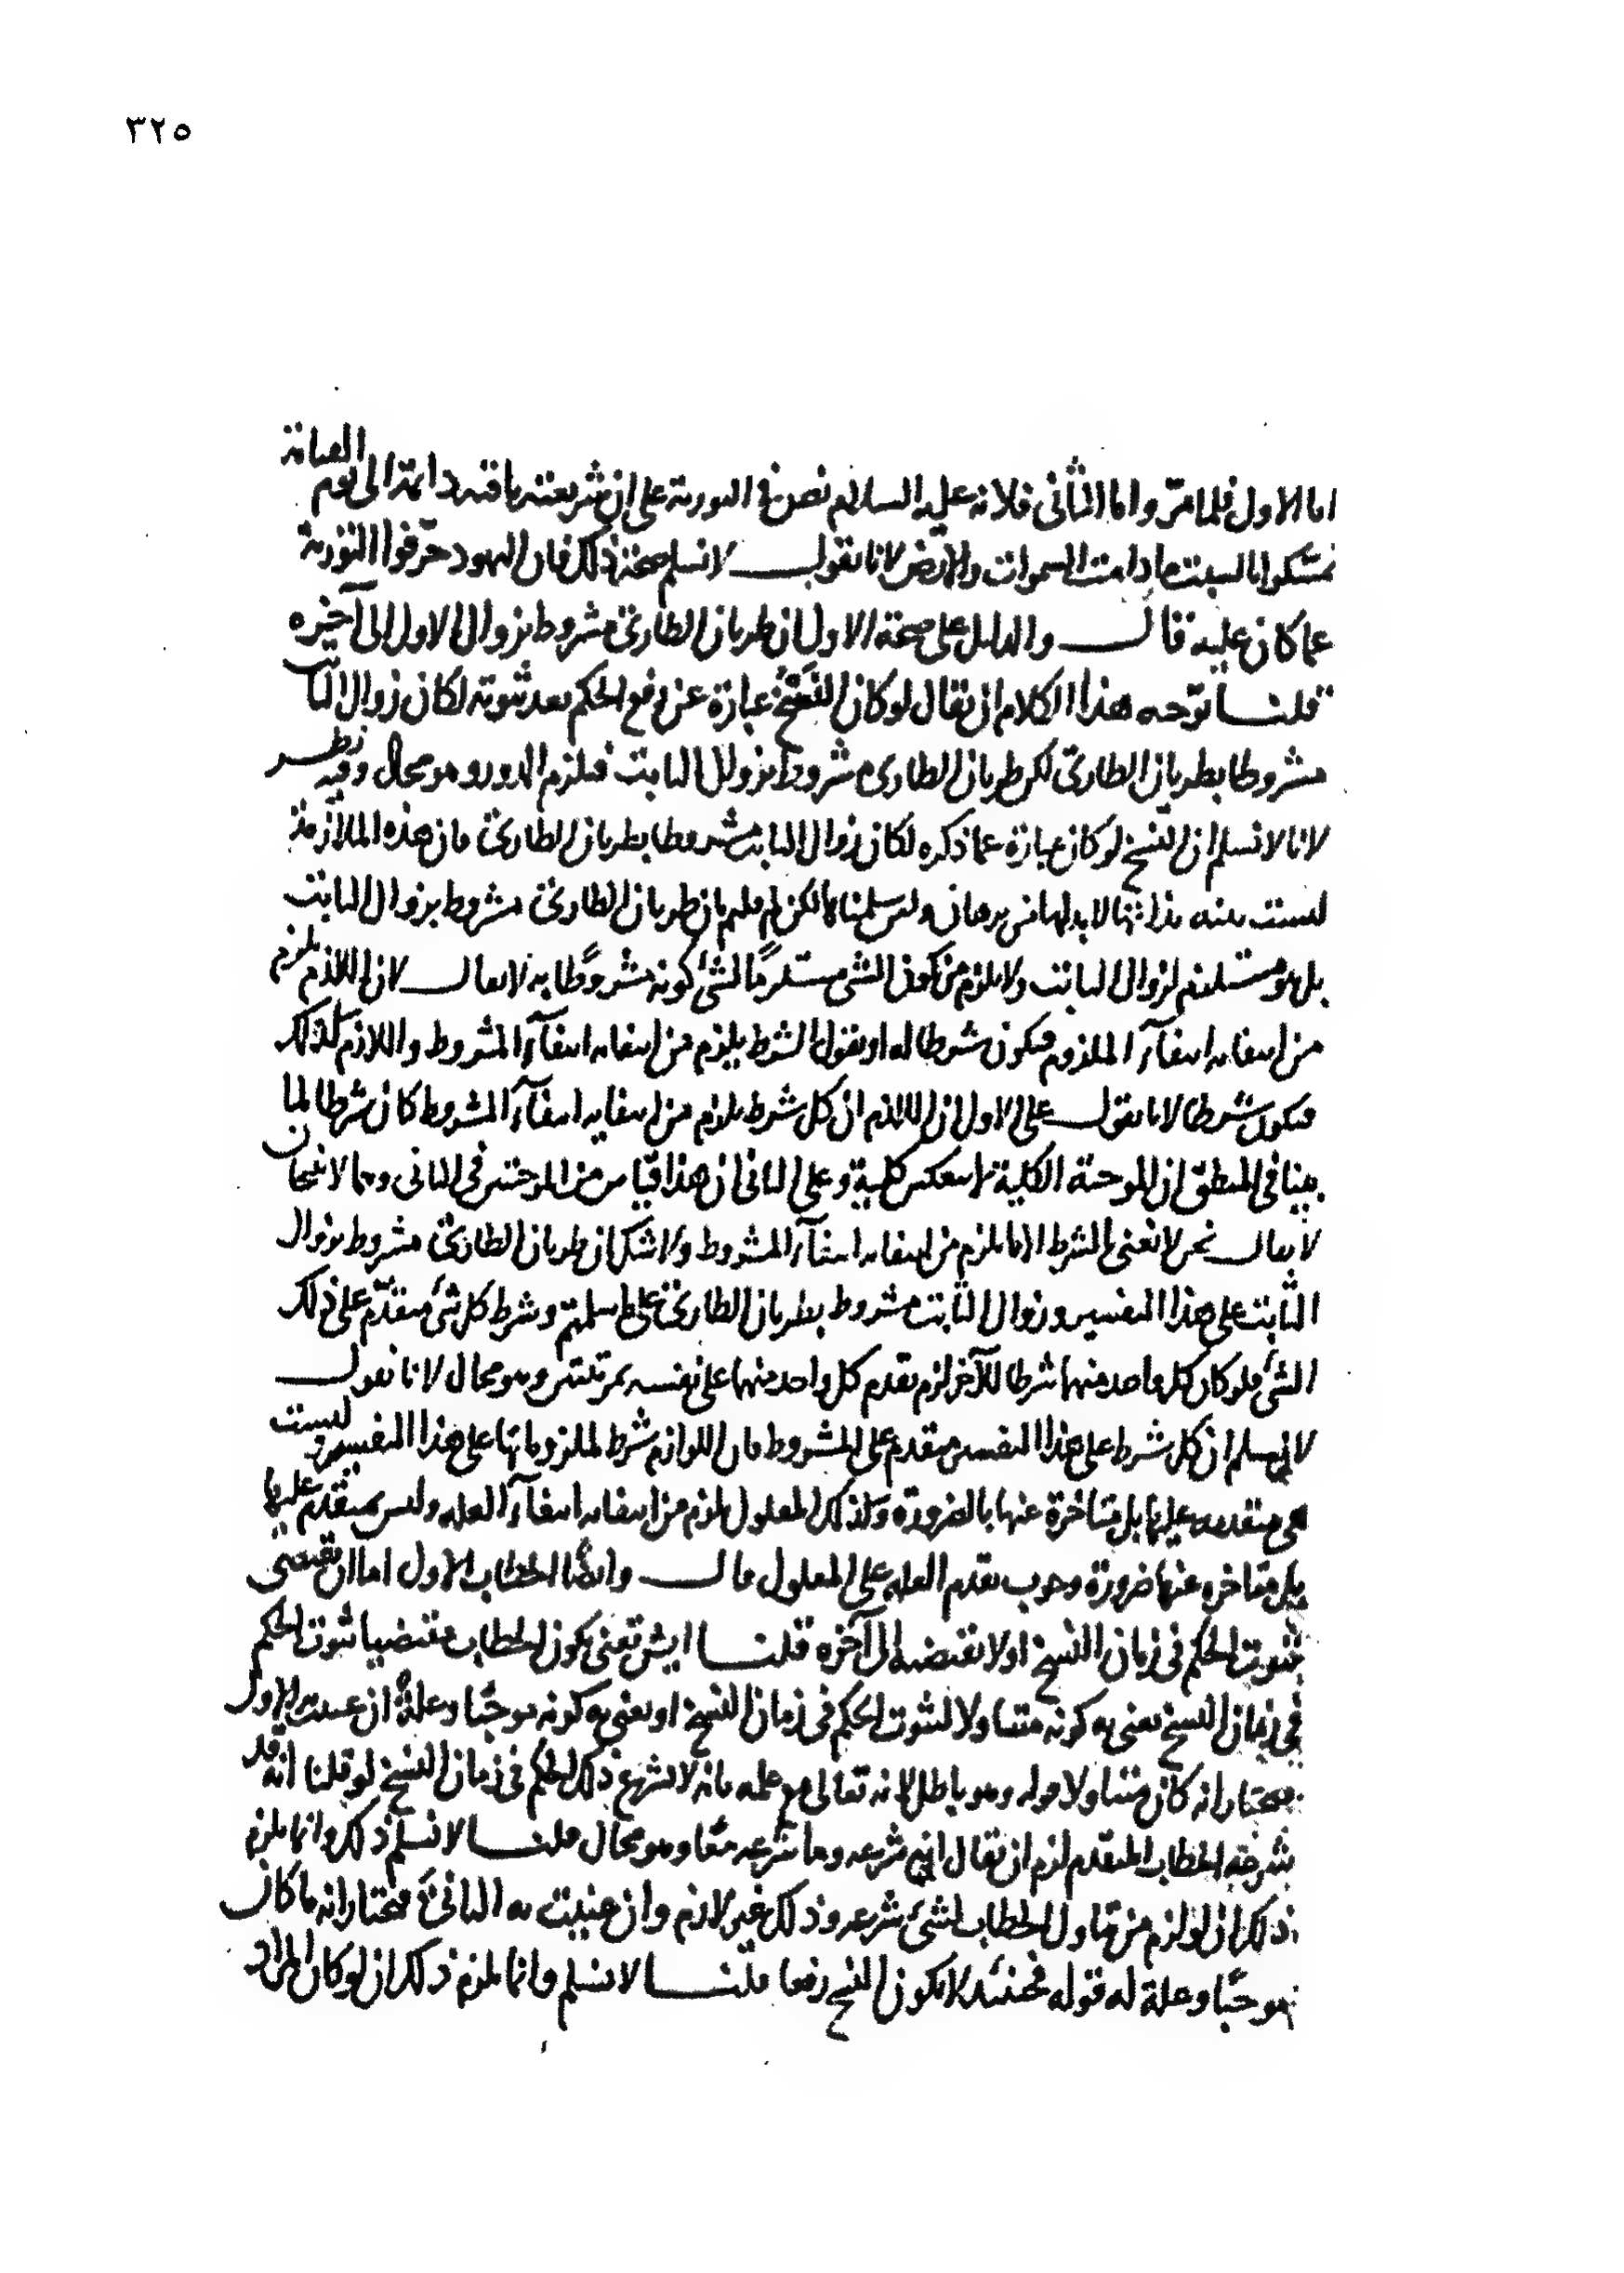 ٣٢٥
اما الاول فلما مرّ واما الثانى فلانه عليه السلام نص فى التورية على ان شريعته باقية دائمة الى يوم القيامة
تمسّكوا بالسبت ما دامت السموات والارض لانا نقول لا نسلم صحة ذلك فان اليهود حرّفوا التورية
عما كان عليه قال والدليل على صحة الاول ان طريان الطارئ مشروط بزوال الاول الى آخره
قلنا توجه هذا الكلام ان يقال لو كان النسخ عبارة عن رفع الحكم بعد ثبوته لكان زوال الثابت
مشروطا بطريان الطارئ لكن طريان الطارى مشروط بزوال الثابت فيلزم الدور وهو محال وفيه نظر
لانا لا نسلم ان النسخ لو كان عبارة عما ذكره لكان زوال الثابت مشروطا بطريان الطارئ فان هذه الملازمة
ليست بينة بذاتها لابد لها من برهان ولئن سلمناها لكن لم قلتم بان طريان الطارئ مشروط بزوال الثابت
بل هو مستلزم لزوال الثابت ولا يلزم من كون الشى مستلزمًا لشئ كونه مشروطا به لا يقال لان اللازم يلزم
من انتفايه انتفآء الملزوم فيكون شرطا له او نقول الشرط يلزم من انتفايه انتفآء المشروط واللازم كذلك
فيكون شرطا لانا نقول على الاول ان اللازم ان كل شرط يلزم من انتفايه انتفآء المشروط كان شرطا لما
بينا فى المنطق ان الموجبة الكلية لا تنعكس كلية وعلى الثانى ان هذا قياس من الموجبتين فى الثانى وهما لا ينتجان
لا يقال نحن لا نعنى بالشرط الا ما يلزم من انتفايه انتفآء المشروط ولا شك ان طريان الطارئ مشروط بزوال
الثابت على هذا التفسير وزوال الثابت مشروط بطريان الطارئ على ما سلمتم وشرط كل شئ متقدّم على ذلك
الشئ فلو كان كل واحد منهما شرطا للآخر لزم تقدم كل واحد منهما على نفسه بمرتبتين وهو محال لانا نقول
لا نسلم ان كل شرط على هذا التفسير متقدم على المشروط فان اللوازم شرط لملزوماتها على هذا التفسير وليست
هى متقدمة عليها بل متاخرة عنها بالضرورة وكذلك المعلول يلزم من انتفايه انتفآء العلة وليس بمتقدم عليها
بل متاخر عنها ضرورة وجوب تقدم العلة على المعلول قال وايضًا الخطاب الاول اما ان يقتضى
ثبوت الحكم فى زمان النسخ او لا يقتضيه الى آخره قلنا ايش تعنى بكون الخطاب مقتضيا ثبوت الحكم
فى زمان النسخ تعنى به كونه متناولا لثبوت الحكم فى زمان النسخ او تعنى به كونه موجبًا وعلةً ان عنيت به الاول
فنختار انه كان متناولا قوله وهو باطل لانه تعالى مع علمه بانه لا يشرع ذلك الحكم فى زمان النسخ لو قلنا انه قد
شرعه الخطاب المتقدم لزم ان يقال انه شرعه وما شرعه معًا وهو محال قلنا لا نسلم ذلك وانما يلزم
ذلك ان لو لزم من تناول الخطاب لشئ شرعه وذلك غير لازم وان عنيت به الثانى فنختار انه ما كان
موجبًا وعلة له قوله فحينئذ لا يكون النسخ رفعا قلنا لا نسلم وانما يلزم ذلك ان لو كان المراد